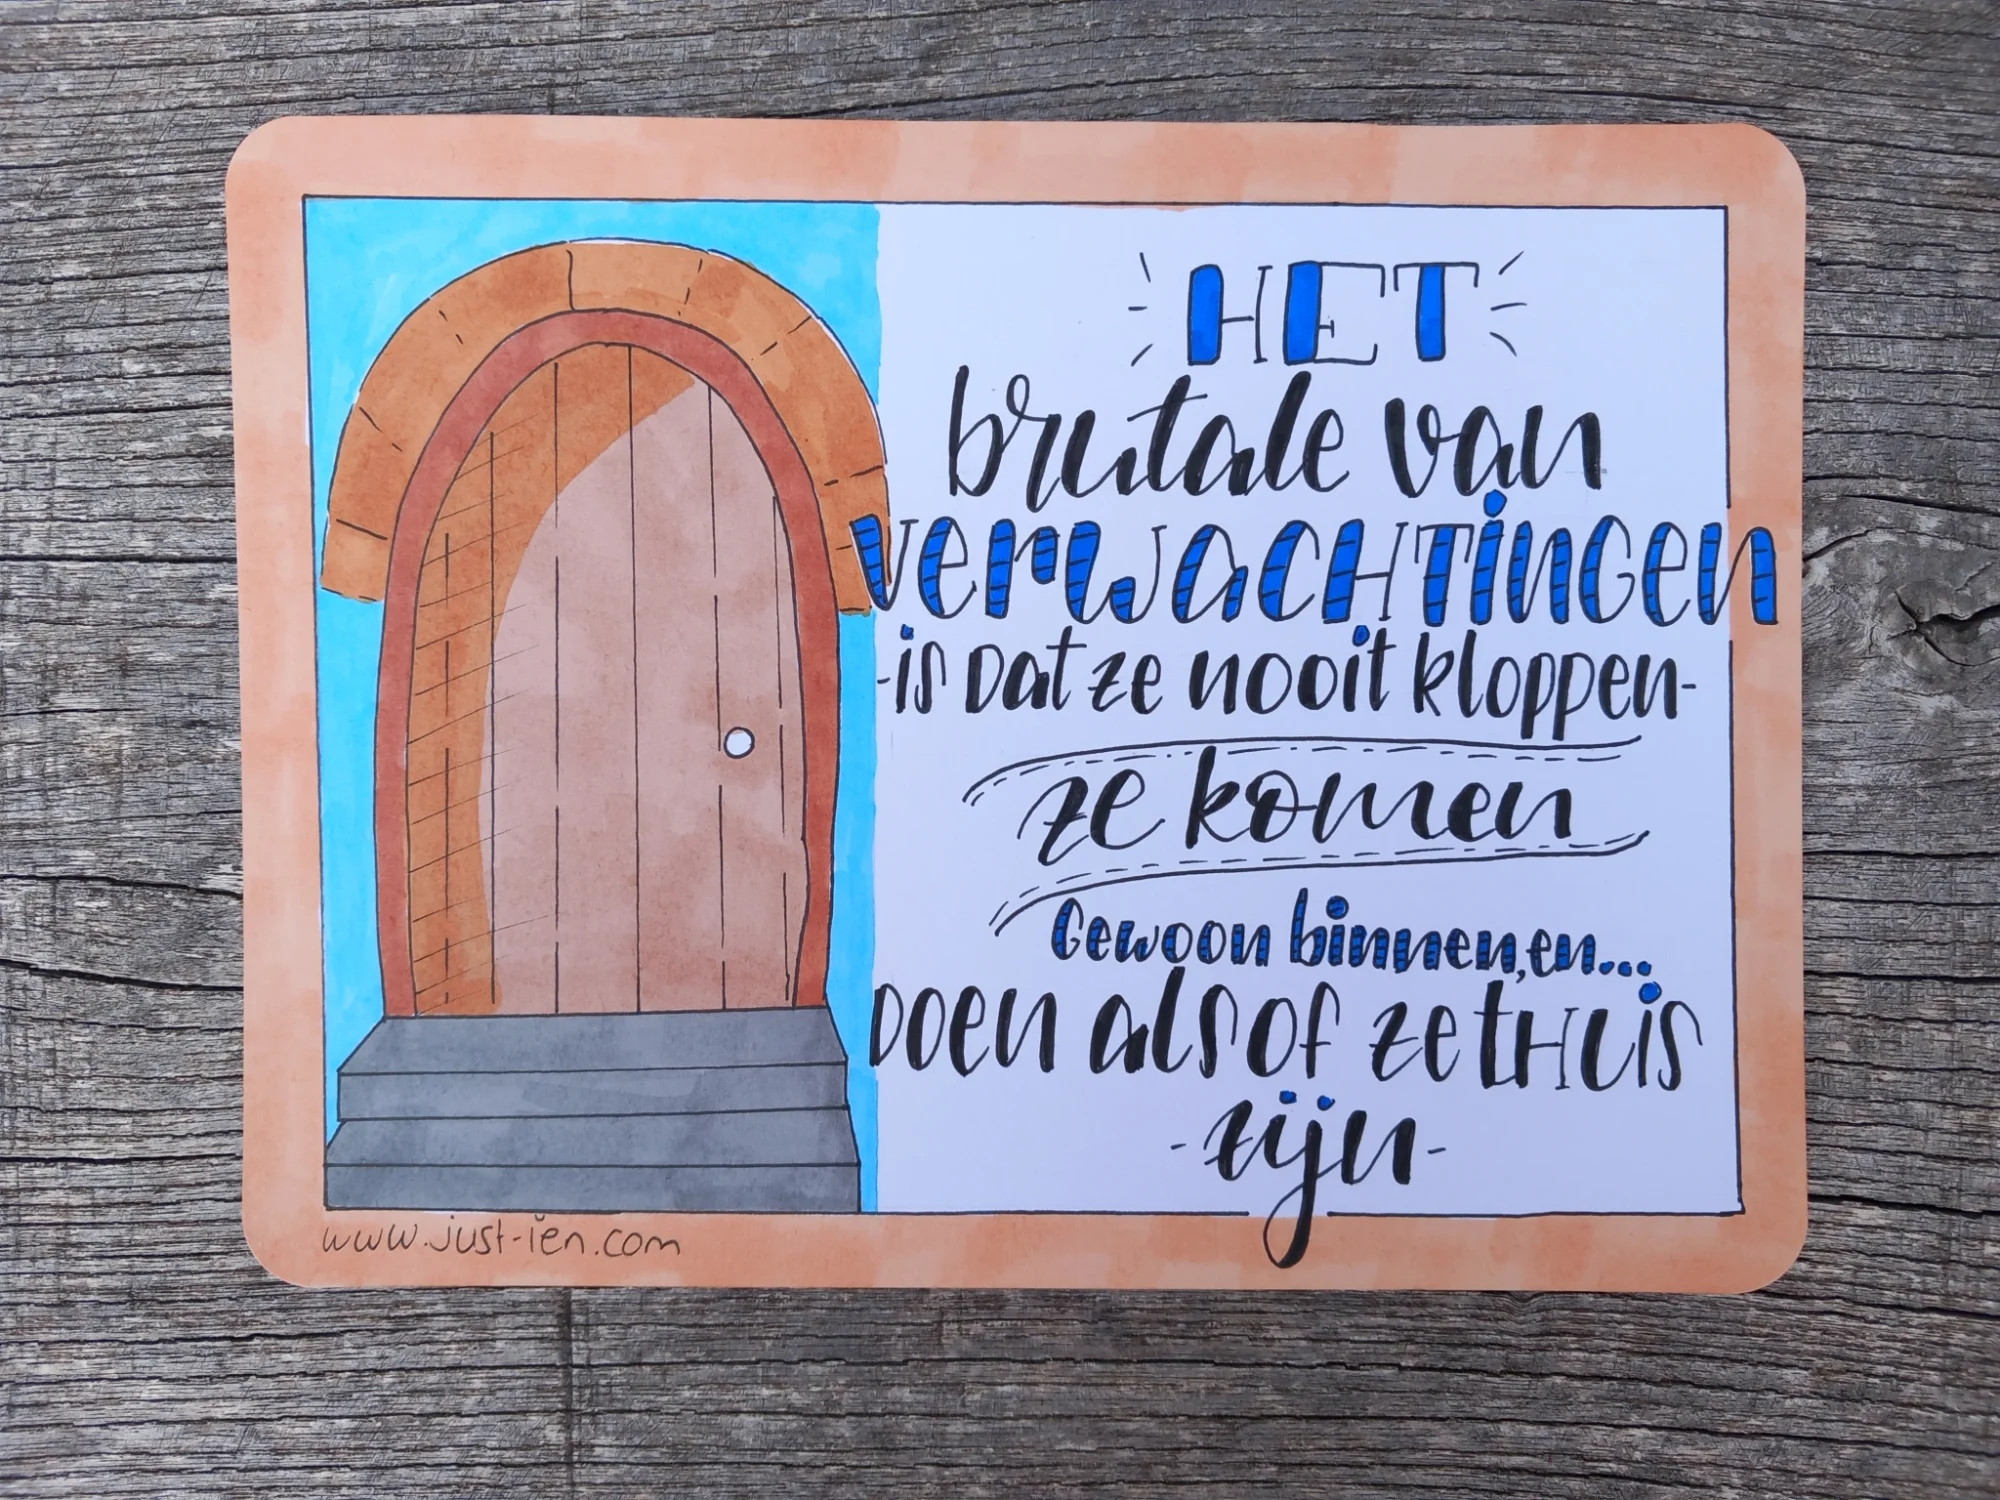 HET
brutale van
verwachtingen
-is Dat ze nooit kloppen-
ze komen
Gewoon binnen, en...
Doen alsof ze tHuis
-zijn-
www.just-ien.com